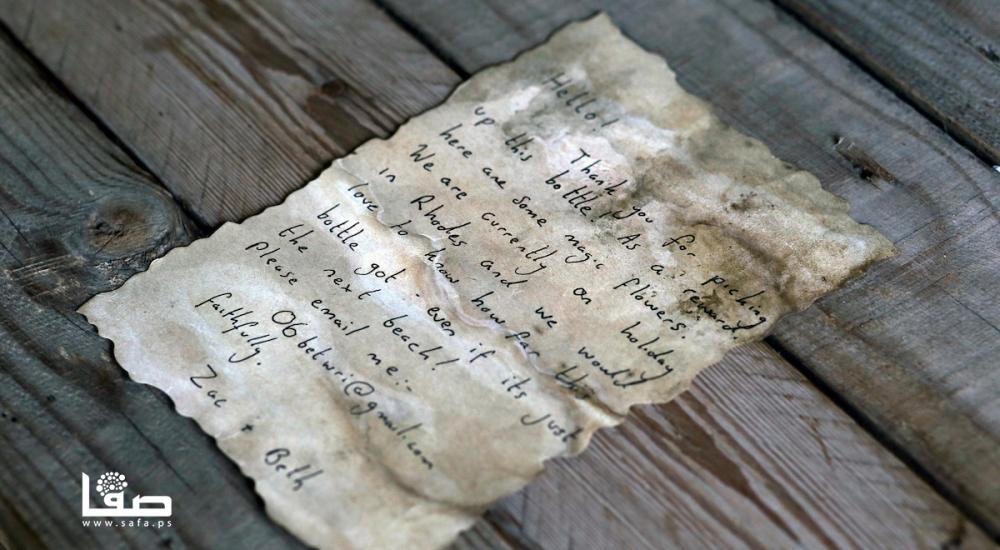 Hello!
Thank you for picking
up this bottle! As a reward,
here are some magic flowers.
We are currently on holiday
in Rhodes and we would
love to know how far this
bottle got - even if its just
the next beach!
please email me..
06betwri@gmail.com
faithfully.
Zac + Beth
صفا
www.safa.ps